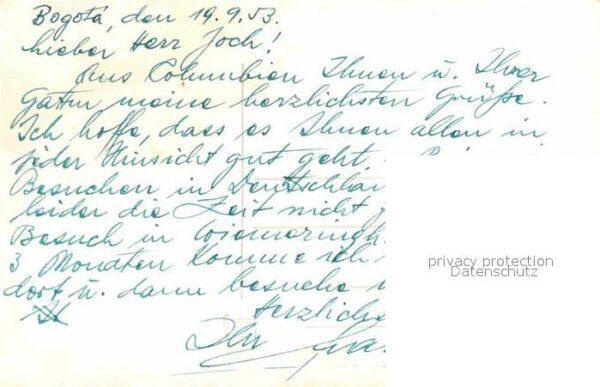 Bogotá, den 19.9.53.
Lieber Herr Joch!
Aus Columbien Ihnen u. Ihrer
Gattin meine herzlichsten Grüße.
Ich hoffe, dass es Ihnen allen in
jeder Hinsicht gut geht.
Besuchen in Deutschlan
leider die Zeit nicht
Besuch in
3 Monaten komme ich
dort u. dann besuche
Herzlichs
Ihr
privacy protection
Datenschutz